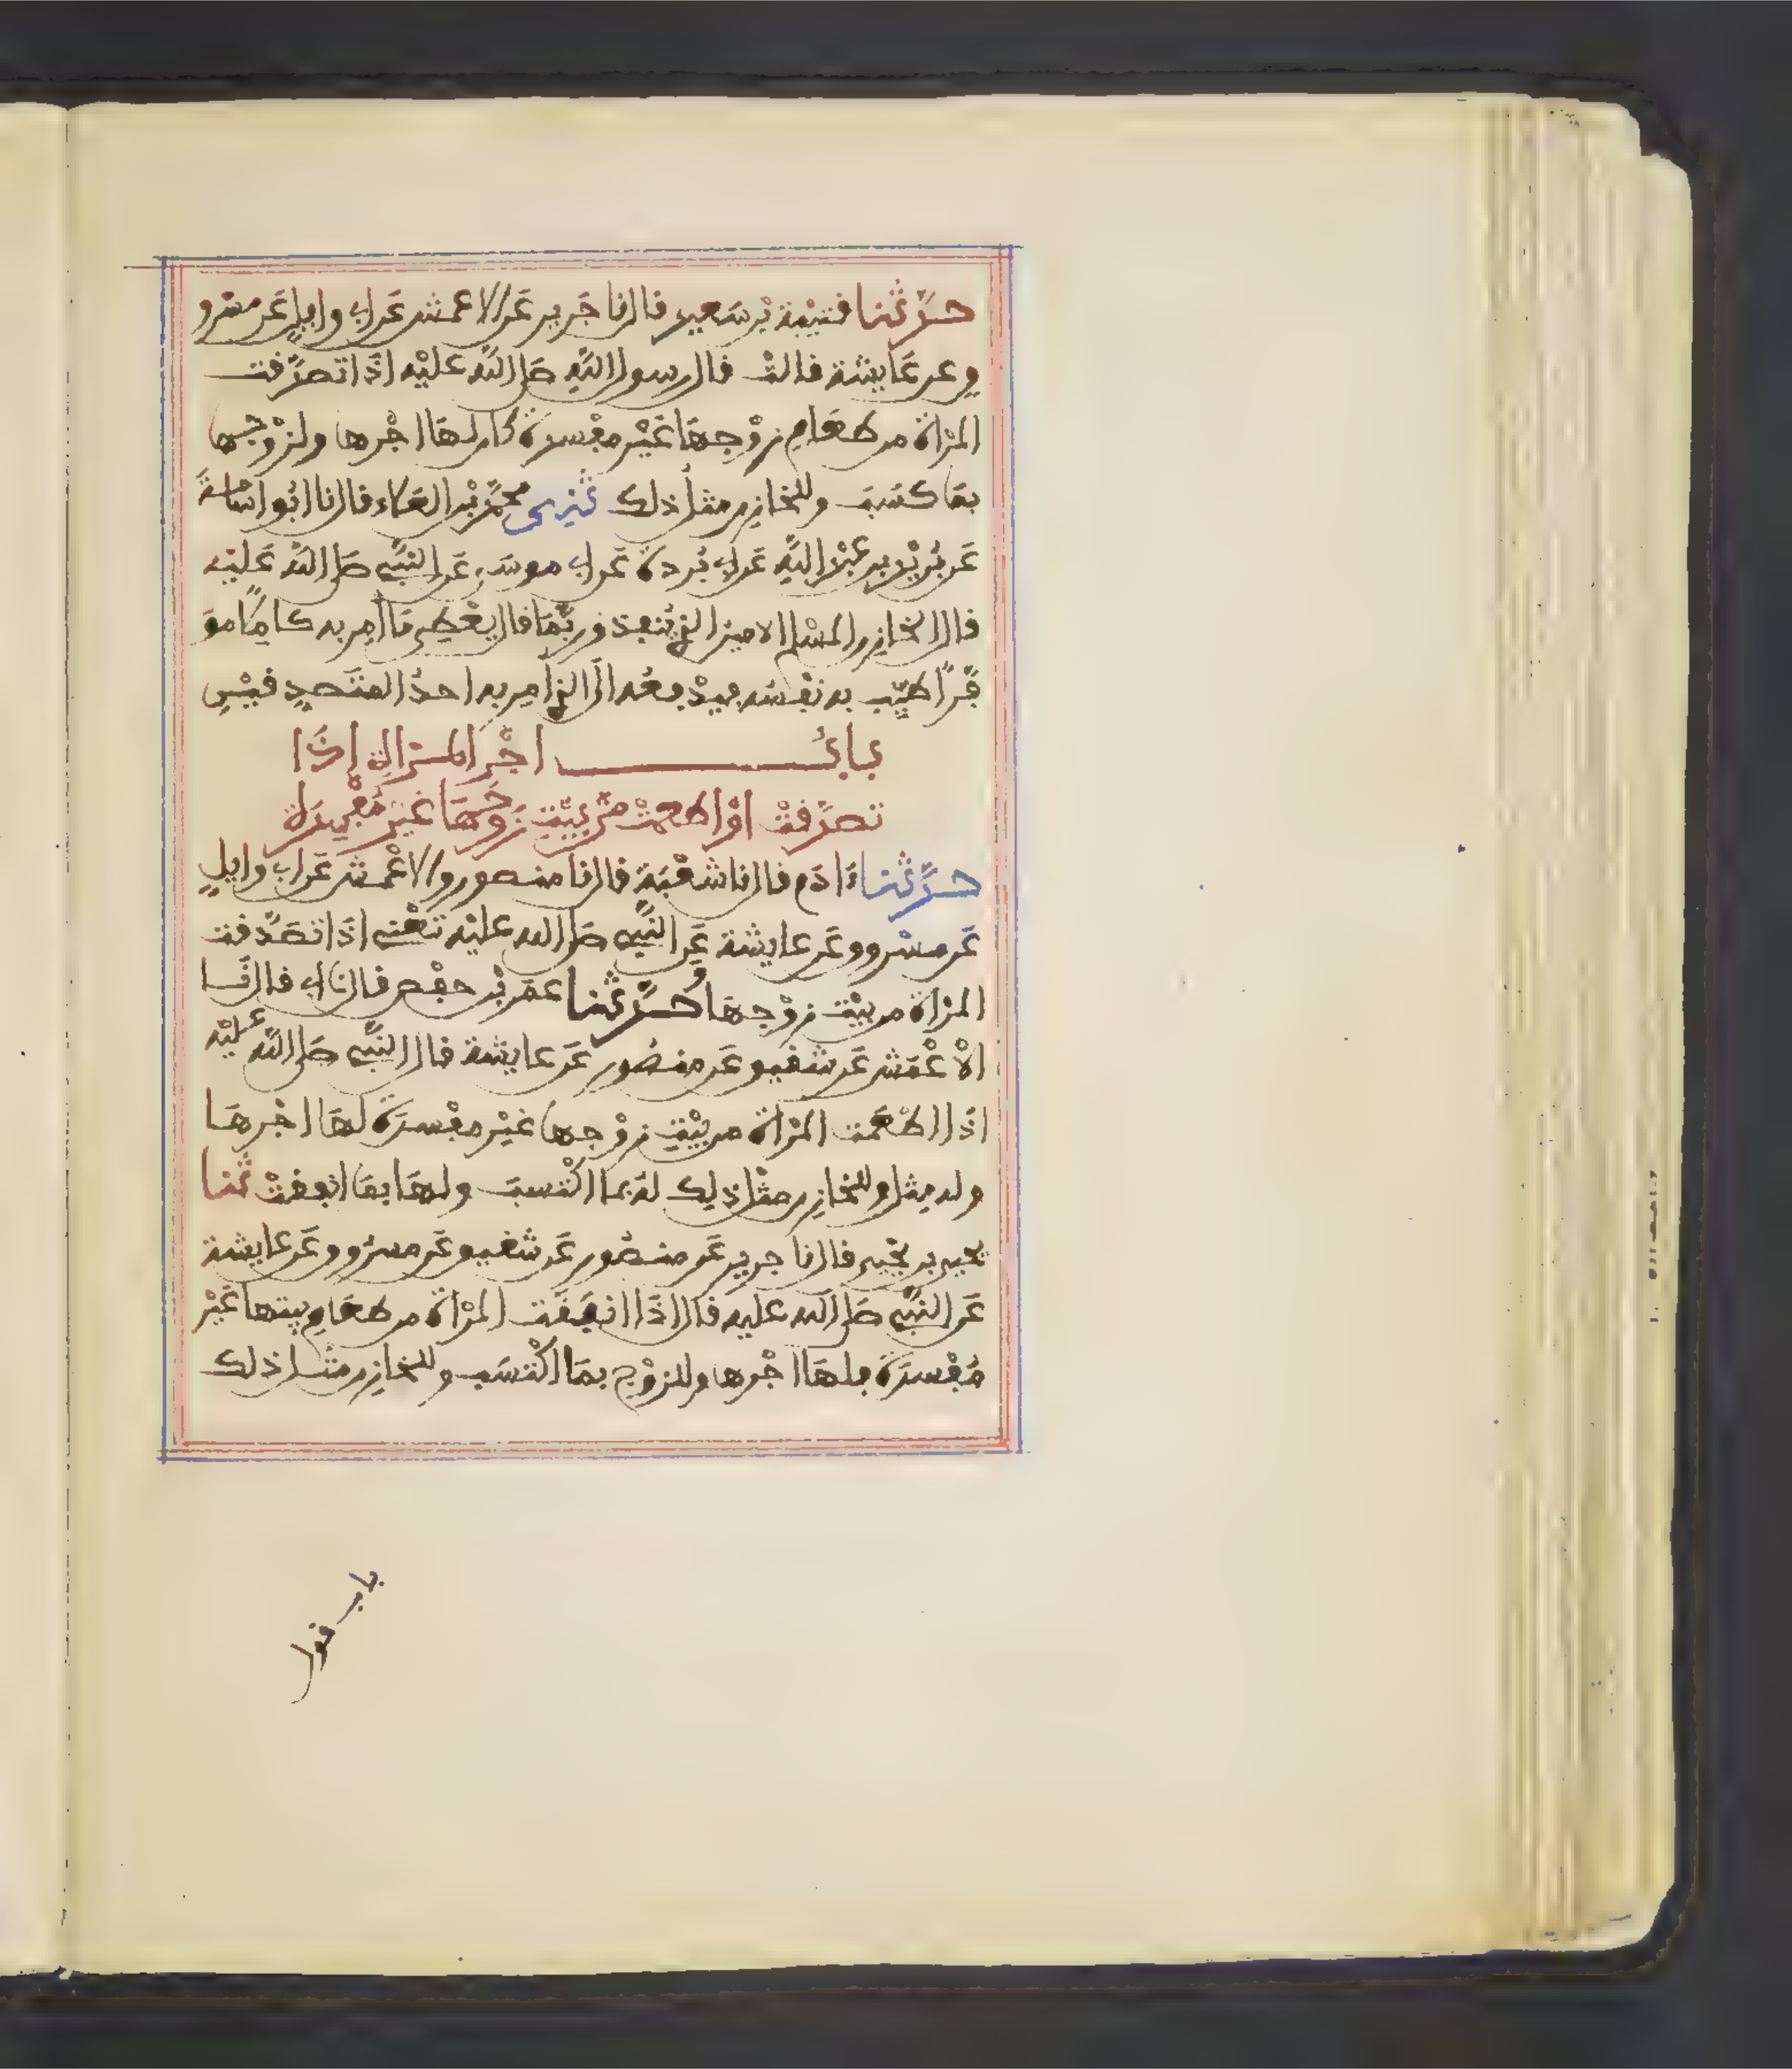 حدثنا قتيبة بن سعيد قال نا جرير عن الاعمش عن ابي وايل عن مسرو
ق عن عايشة قالت قال رسول الله صلى الله عليه اذا تصدقت
المرأة من طعام زوجها غير مفسدة كان لها اجرها ولزوجها
بما كسب وللخازن مثل ذلك ثني محمد بن العلاء قال نا ابو اسامة
عن بريد بن عبد الله عن ابي بردة عن ابي موسى عن النبي صلى الله عليه
قال الخازن المسلم الامين الذي ينفذ وربما قال يعطي ما امر به كاملا مو
فرا طيب به نفسه فيدفعه الى الذي امر به احد المتصدقين
باب اجر المرأة إذا
تصدقت أو اطعمت من بيت زوجها غير مفسدة
حدثنا ءادم قال نا شعبة قال نا منصور والاعمش عن ابي وايل
عن مسروق عن عايشة عن النبي صلى الله عليه تعني اذا تصدقت
المرأة من بيت زوجها وحدثنا عمر بن حفص قال نا ابي قال نا
الاعمش عن شقيق عن منصور عن عايشة قال النبي صلى الله عليه
اذا اطعمت المرأة من بيت زوجها غير مفسدة لها اجرها
وله مثله وللخازن مثل ذلك له بما اكتسب ولها بما انفقت ثنا
يحيى بن يحيى قال نا جرير عن منصور عن شقيق عن مسروق عن عايشة
عن النبي صلى الله عليه قال اذا انفقت المرأة من طعام بيتها غير
مفسدة فلها اجرها وللزوج بما اكتسب وللخازن مثل ذلك
باب قول